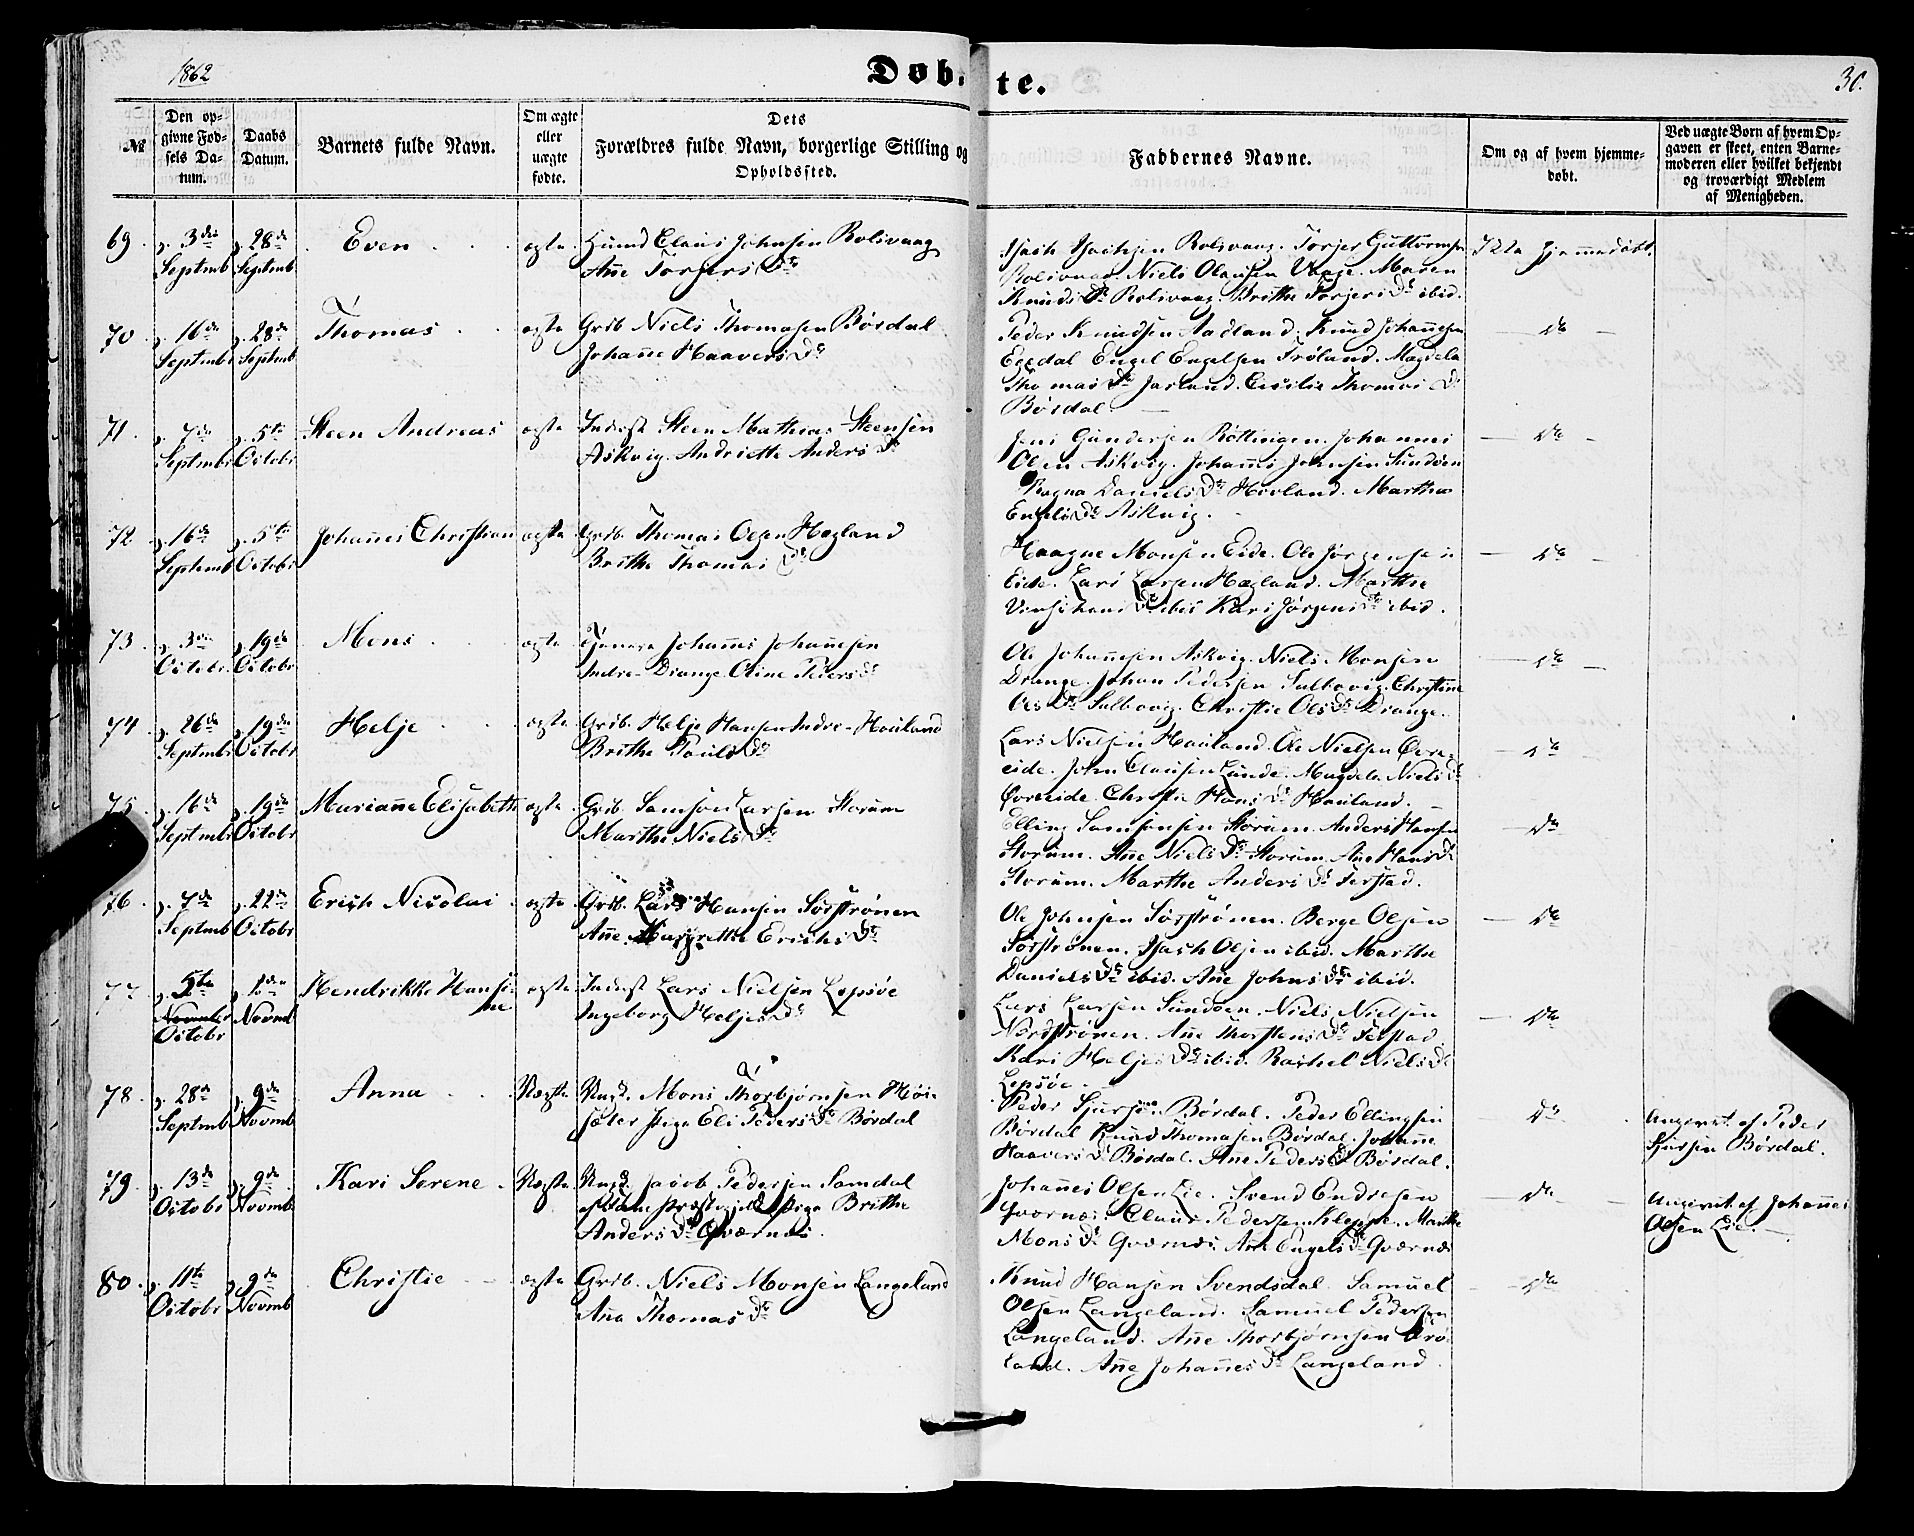 1862
Døbte.
30.
№
Den opgivne Fødsels Datum.
Daabs Datum.
Barnets fulde Navn.
Om ægte eller uægte fødte.
Dets Forældres fulde Navn, borgerlige Stilling og Opholdssted.
Faddernes Navne.
Om og af hvem hjemmedøbt.
Ved uægte Børn af hvem Opgaven er skeet, enten Barnemoderen eller hvilket bekjendt og troværdigt Medlem af Menigheden.
69. 3de Septmb 28de Septmb Even ægte Huusmd Claus Johnsen Rolsvaag
Ane Torgers Dr
Isach Isachsen Rolsvaag. Torger Guttormsen
Rolsvaag. Niels Olausen Vaage. Maren
Knuds Dr Rolsvaag. Brithe Torgers Dr ibid.
Ikke hjemmedøbt.
70. 16de Septmbr 28de Septmb Thomas ægte Grdb Niels Thomasen Børdal
Johanne Haavers Dr
Peder Knudsen Aadland. Knud Johannesen
Eegdal Engel Engelsen Trøland. Magdela
Thomas Dr Jarland. Cecilie Thomas Dr
Børdal.
do
71. 7de Septmbr 5te Octobr Steen Andreas ægte Inderst Steen Mathias Steensen
Askvig. Andriette Anders Dr
Jens Gundersen Røttingen. Johannes
Olsen Askvig. Johannes Johnsen Sundøen
Ragna Daniels Dr Hovland. Martha
Engels Dr Askvig.
do
72. 16de Septmb 5te Octobr Johannes Christian ægte Grdb. Thomas Olsen Hægland
Brithe Thomas Dr
Haagne Monsen Eide. Ole Jørgensen
Eide. Lars Larsen Hægland. Marthe
Dr ibid Kari Jørgens Dr ibid.
do
73. 3die Octobr. 19de Octobr Mons ægte Tjener Johannes Johannesen
Indre-Drange. Oline Peders Dr
Ole Johannesen Askvig. Niels Monsen
Drange. Johan Pedersen Salbovig. Christine
Ols Dr Salbovig. Christie Ols Dr Drange.
do
74. 26de Septmbr 19de Octobr Helje ægte Grdb. Helje Hansen Indre-Hauland
Brithe Pauls Dr
Lars Nielsen Hauland. Ole Nielsen Øvre-
eide. John Clausen Lunde. Magdela Niels Dr
Øvreeide. Christie Hans Dr Hauland.
do
75. 16de Septmbr 19de Octobr Marianne Elisabeth ægte Grdb. Samson Larsen Storum
Marthe Niels Dr
Elling Samsonsen Storum. Anders Hansen
Storum. Ane Niels Dr Storum. Ane Hans Dr
Storum. Marthe Anders Dr Ferstad.
do
76. 7de Septmb 22de Octobr Erich Nicolai ægte Grdb. Lars Hansen Sørstrønen
Ane Margrethe Erichs Dr
Ole Johnsen Sørstrønen. Berge Olsen
Sørstrønen. Isach Olsen ibid. Marthe
Daniels Dr ibid. Ane Johns Dr ibid.
do
77. 5te Novmbr Octobr 2den Novmb Hendrikke Hansi-
ne ægte Inderst Lars Nielsen Lepsøe
Ingeborg Heljes Dr
Lars Larsen Sundøen. Niels Nielsen
Nordstrønen. Ane Thorstens Dr Ferstad
Kari Heljes Dr ibid. Rachel Niels Dr
Lepsøe.
do
78. 28de Septmb 9de Novmb Anna Uægte Ungk. Mons Thorbjørnsen Høi-
sæter Pige Eli Peders Dr Børdal
Peder Sjursen Børdal. Peder Ellingsen
Børdal Knud Thomasen Børdal. Johanne
Haavers Dr Børdal. Ane Peders Dr Børdal.
do
Angivet af Peder
Sjursen Børdal.
79. 13de Octobr 9de Novmb Kari Serene Uægte Ungk. Jacob Pedersen Samdal
Præstegjeld Pige Brithe
Anders Dr Qværnæs.
Johannes Olsen Lie. Svend Endresen
Qværnæs. Claus Pedersen Kleppe. Marthe
Mons Dr Qværnæs. Ane Engels Dr Qværnæs
do
Angivet af Johannes
Olsen Lie.
80. 11te Octobr 9de Novmb Christie ægte Grdb. Niels Monsen Langeland
Ane Thomas Dr
Knud Hansen Svendsdal. Samuel
Olsen Langeland. Samuel Pedersen
Langeland. Ane Thorbjørnsen Trø-
land. Ane Johannes Dr Langeland.
do